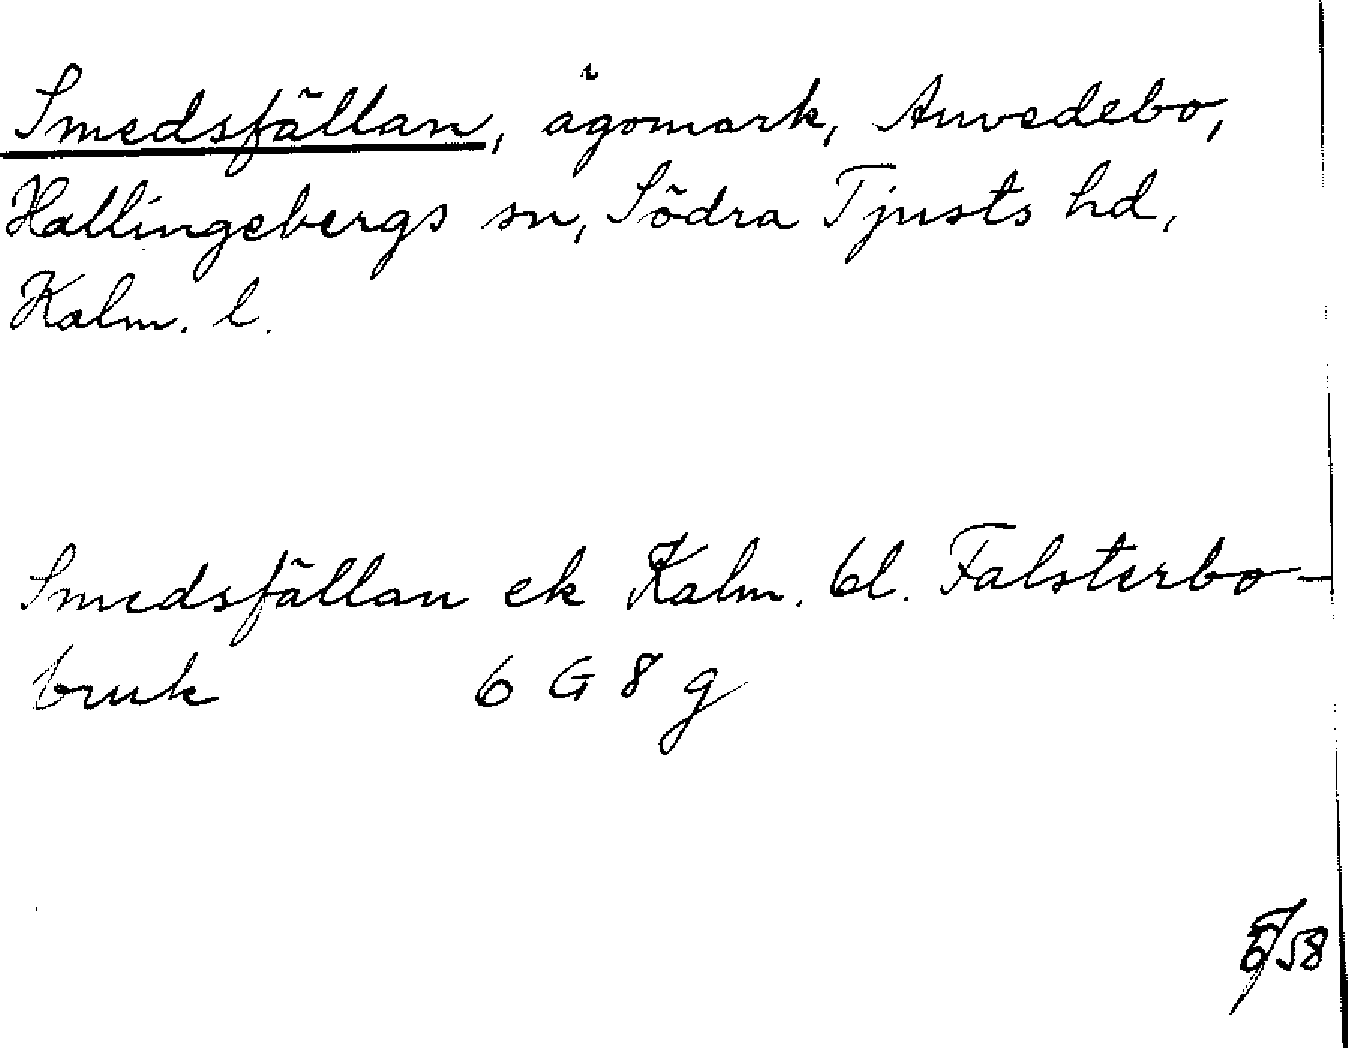 Smedsfällan, ägomark, i Anvedebo,
Hallingebergs sn, Södra Tjusts hd,
Kalm. l.
Smedsfällan ek Kalm. bl. Falsterbo-
bruk 6 G 8 g
/58